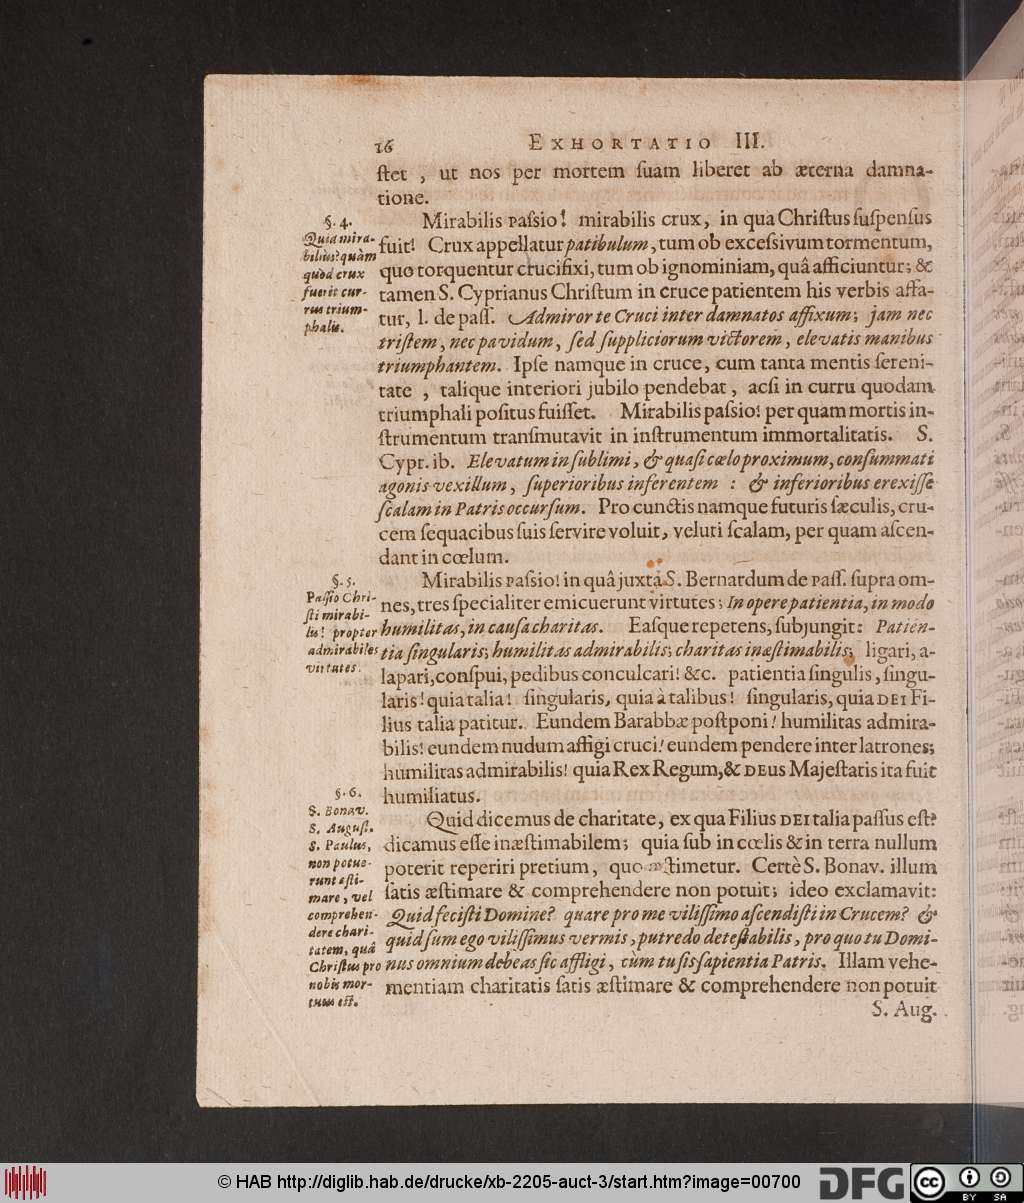 16 EXHORTATIO III.
ſtet , ut nos per mortem ſuam liberet ab æterna damna-
tione.
§. 4.
Quid mira-
bilius? quàm
quod crux
fuerit cur-
rus trium-
phalis.
Mirabilis Paſsio! mirabilis crux, in qua Chriſtus ſuſpenſus
fuit! Crux appellatur patibulum, tum ob exceſsivum tormentum,
quo torquentur crucifixi, tum ob ignominiam, quâ afficiuntur; &
tamen S. Cyprianus Chriſtum in cruce patientem his verbis affa-
tur, l. de paſſ. Admiror te Cruci inter damnatos affixum; jam nec
triſtem, nec pavidum, ſed ſuppliciorum victorem, elevatis manibus
triumphantem. Ipſe namque in cruce, cum tanta mentis ſereni-
tate , talique interiori jubilo pendebat, acſi in curru quodam
triumphali poſitus fuiſſet. Mirabilis paſsio! per quam mortis in-
ſtrumentum tranſmutavit in inſtrumentum immortalitatis. S.
Cypr. ib. Elevatum in ſublimi, & quaſi cœlo proximum, conſummati
agonis vexillum, ſuperioribus inferentem : & inferioribus erexiſſe
ſcalam in Patris occurſum. Pro cunctis namque futuris ſæculis, cru-
cem ſequacibus ſuis ſervire voluit, veluti ſcalam, per quam aſcen-
dant in cœlum.
§. 5.
Paſſio Chri-
ſti mirabi-
lis! propter
admirabiles
virtutes.
Mirabilis Paſsio! in quâ juxta S. Bernardum de Paſſ. ſupra om-
nes, tres ſpecialiter emicuerunt virtutes; In opere patientia, in modo
humilitas, in cauſa charitas. Eaſque repetens, ſubjungit: Patien-
tia ſingularis; humilitas admirabilis; charitas inæſtimabilis; ligari, a-
lapari, conſpui, pedibus conculcari! &c. patientia ſingulis, ſingu-
laris! quia talia! ſingularis, quia à talibus! ſingularis, quia DEI Fi-
lius talia patitur. Eundem Barabbæ poſtponi! humilitas admira-
bilis! eundem nudum affigi cruci! eundem pendere inter latrones;
humilitas admirabilis! quia Rex Regum, & DEus Majeſtatis ita fuit
humiliatus.
§. 6.
S. Bonav.
S. Auguſt.
S. Paulus,
non potue-
runt æſti-
mare, vel
comprehen-
dere chari-
tatem, quâ
Chriſtus pro
nobis mor-
tuus eſt.
Quid dicemus de charitate, ex qua Filius DEI talia paſſus eſt?
dicamus eſſe inæſtimabilem; quia ſub in cœlis & in terra nullum
poterit reperiri pretium, quo æſtimetur. Certè S. Bonav. illum
ſatis æſtimare & comprehendere non potuit; ideo exclamavit:
Quid feciſti Domine? quare pro me viliſſimo aſcendiſti in Crucem? &
quid ſum ego viliſſimus vermis, putredo deteſtabilis, pro quo tu Domi-
nus omnium debeas ſic affligi, cùm tu ſis ſapientia Patris. Illam vehe-
mentiam charitatis ſatis æſtimare & comprehendere non potuit
S. Aug.
© HAB http://diglib.hab.de/drucke/xb-2205-auct-3/start.htm?image=00700
DFG
cc
BY SA